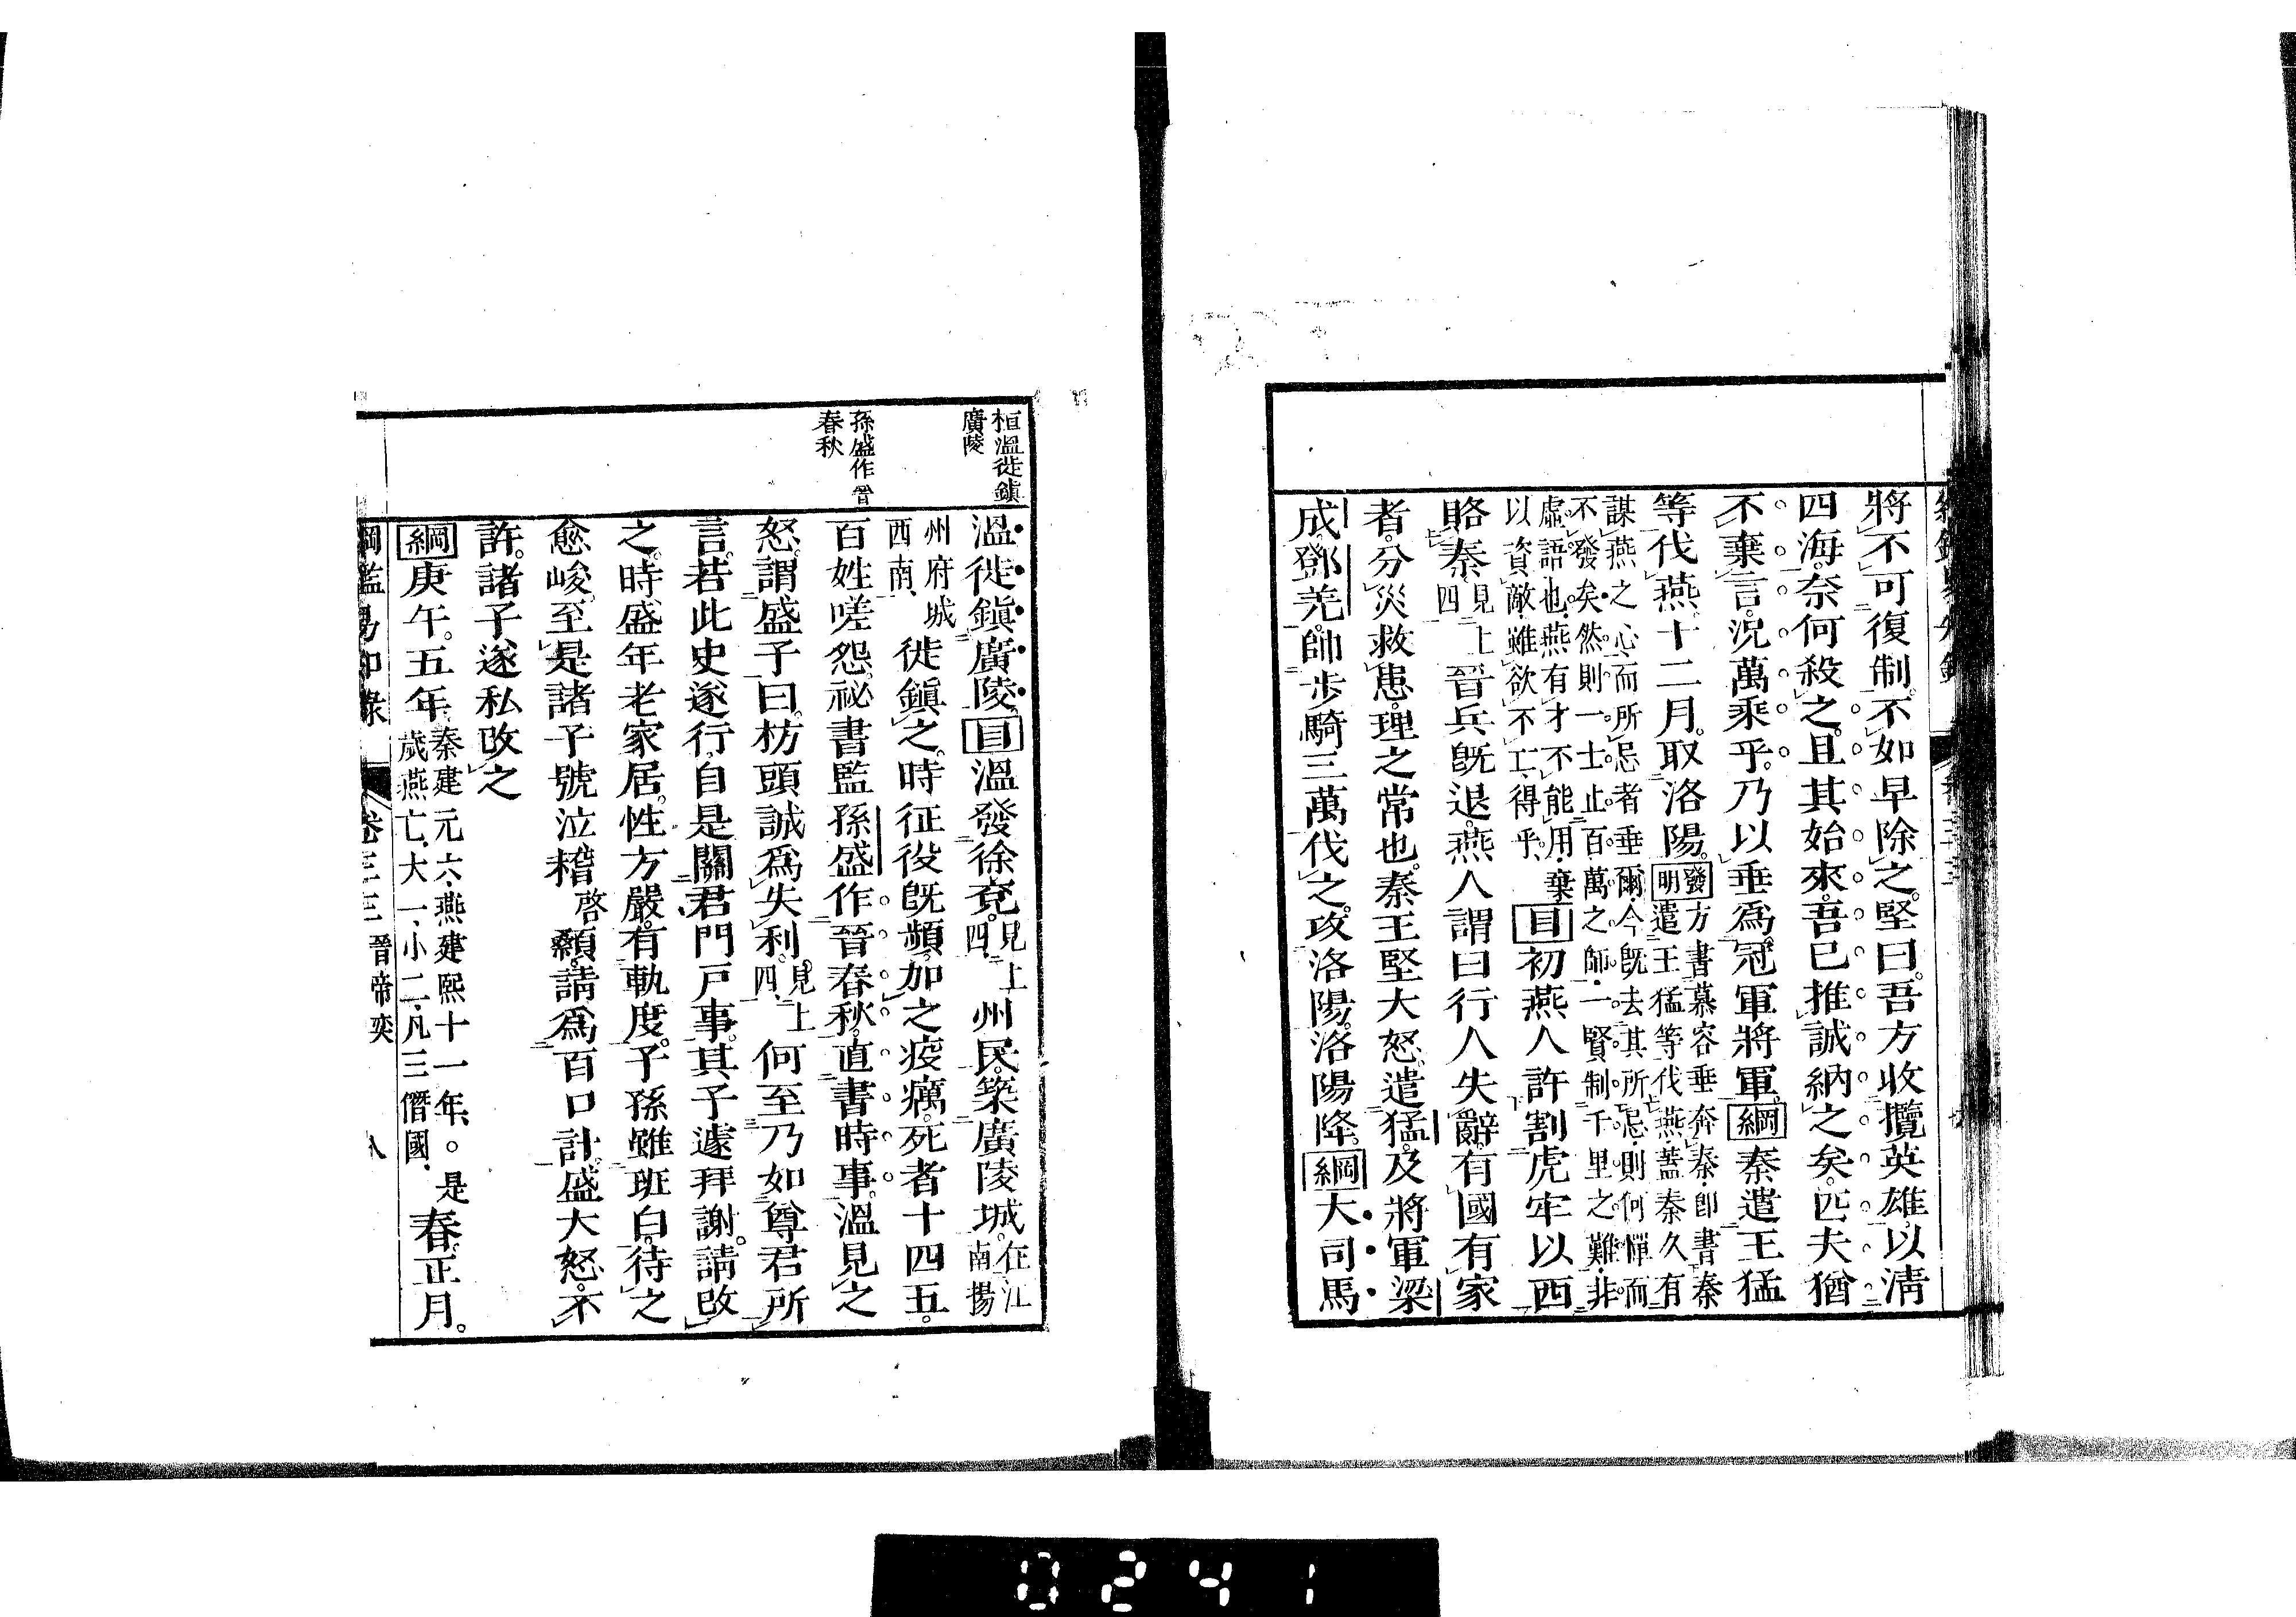 將不可復制。不如早除之。堅曰。吾方收攬英雄。以淸
四海。奈何殺之。且其始來。吾已推誠納之矣。匹夫猶
不棄言。況萬乘乎。乃以垂爲冠軍將軍。綱秦遣王猛
等伐燕。十二月。取洛陽。發明方書慕容垂奔秦、卽書秦
遣王猛等伐燕、蓋秦久有
謀燕之心、而所忌者垂爾、今旣去其所忌、則何憚而
不發矣、然則一士止百萬之師、一賢制千里之難、非
虛語也、燕有才不能用、棄
以資敵、雖欲不亡、得乎、目初燕人許割虎牢以西
賂秦。見上四晉兵旣退。燕人謂曰。行人失辭。有國有家
者。分災救患。理之常也。秦王堅大怒。遣猛。及將軍梁
成。鄧羌。帥步騎三萬伐之。攻洛陽。洛陽降。綱大司馬
桓溫徙鎭
廣陵
孫盛作晉
春秋
溫徙鎭廣陵。目溫發徐兗。見上四州民。築廣陵城。在江南揚
州府城西南、徙鎭之。時征役旣頻。加之疫癘。死者十四五。
百姓嗟怨。祕書監孫盛作晉春秋。直書時事。溫見之
怒。謂盛子曰。枋頭誠爲失利。見上四、何至乃如尊君所
言。若此史遂行。自是關君門戸事。其子遽拜謝。請改
之。時盛年老家居。性方嚴。有軌度。子孫雖班白。待之
愈峻。至是諸子號泣稽啓顙。請爲百口計。盛大怒。不
許。諸子遂私改之
綱庚午。五年、秦建元六、燕建熙十一年、○是
歲燕亡、大一、小二、凡三僭國、春。正月。
綱鑑易知錄 卷三三 晉帝奕 八